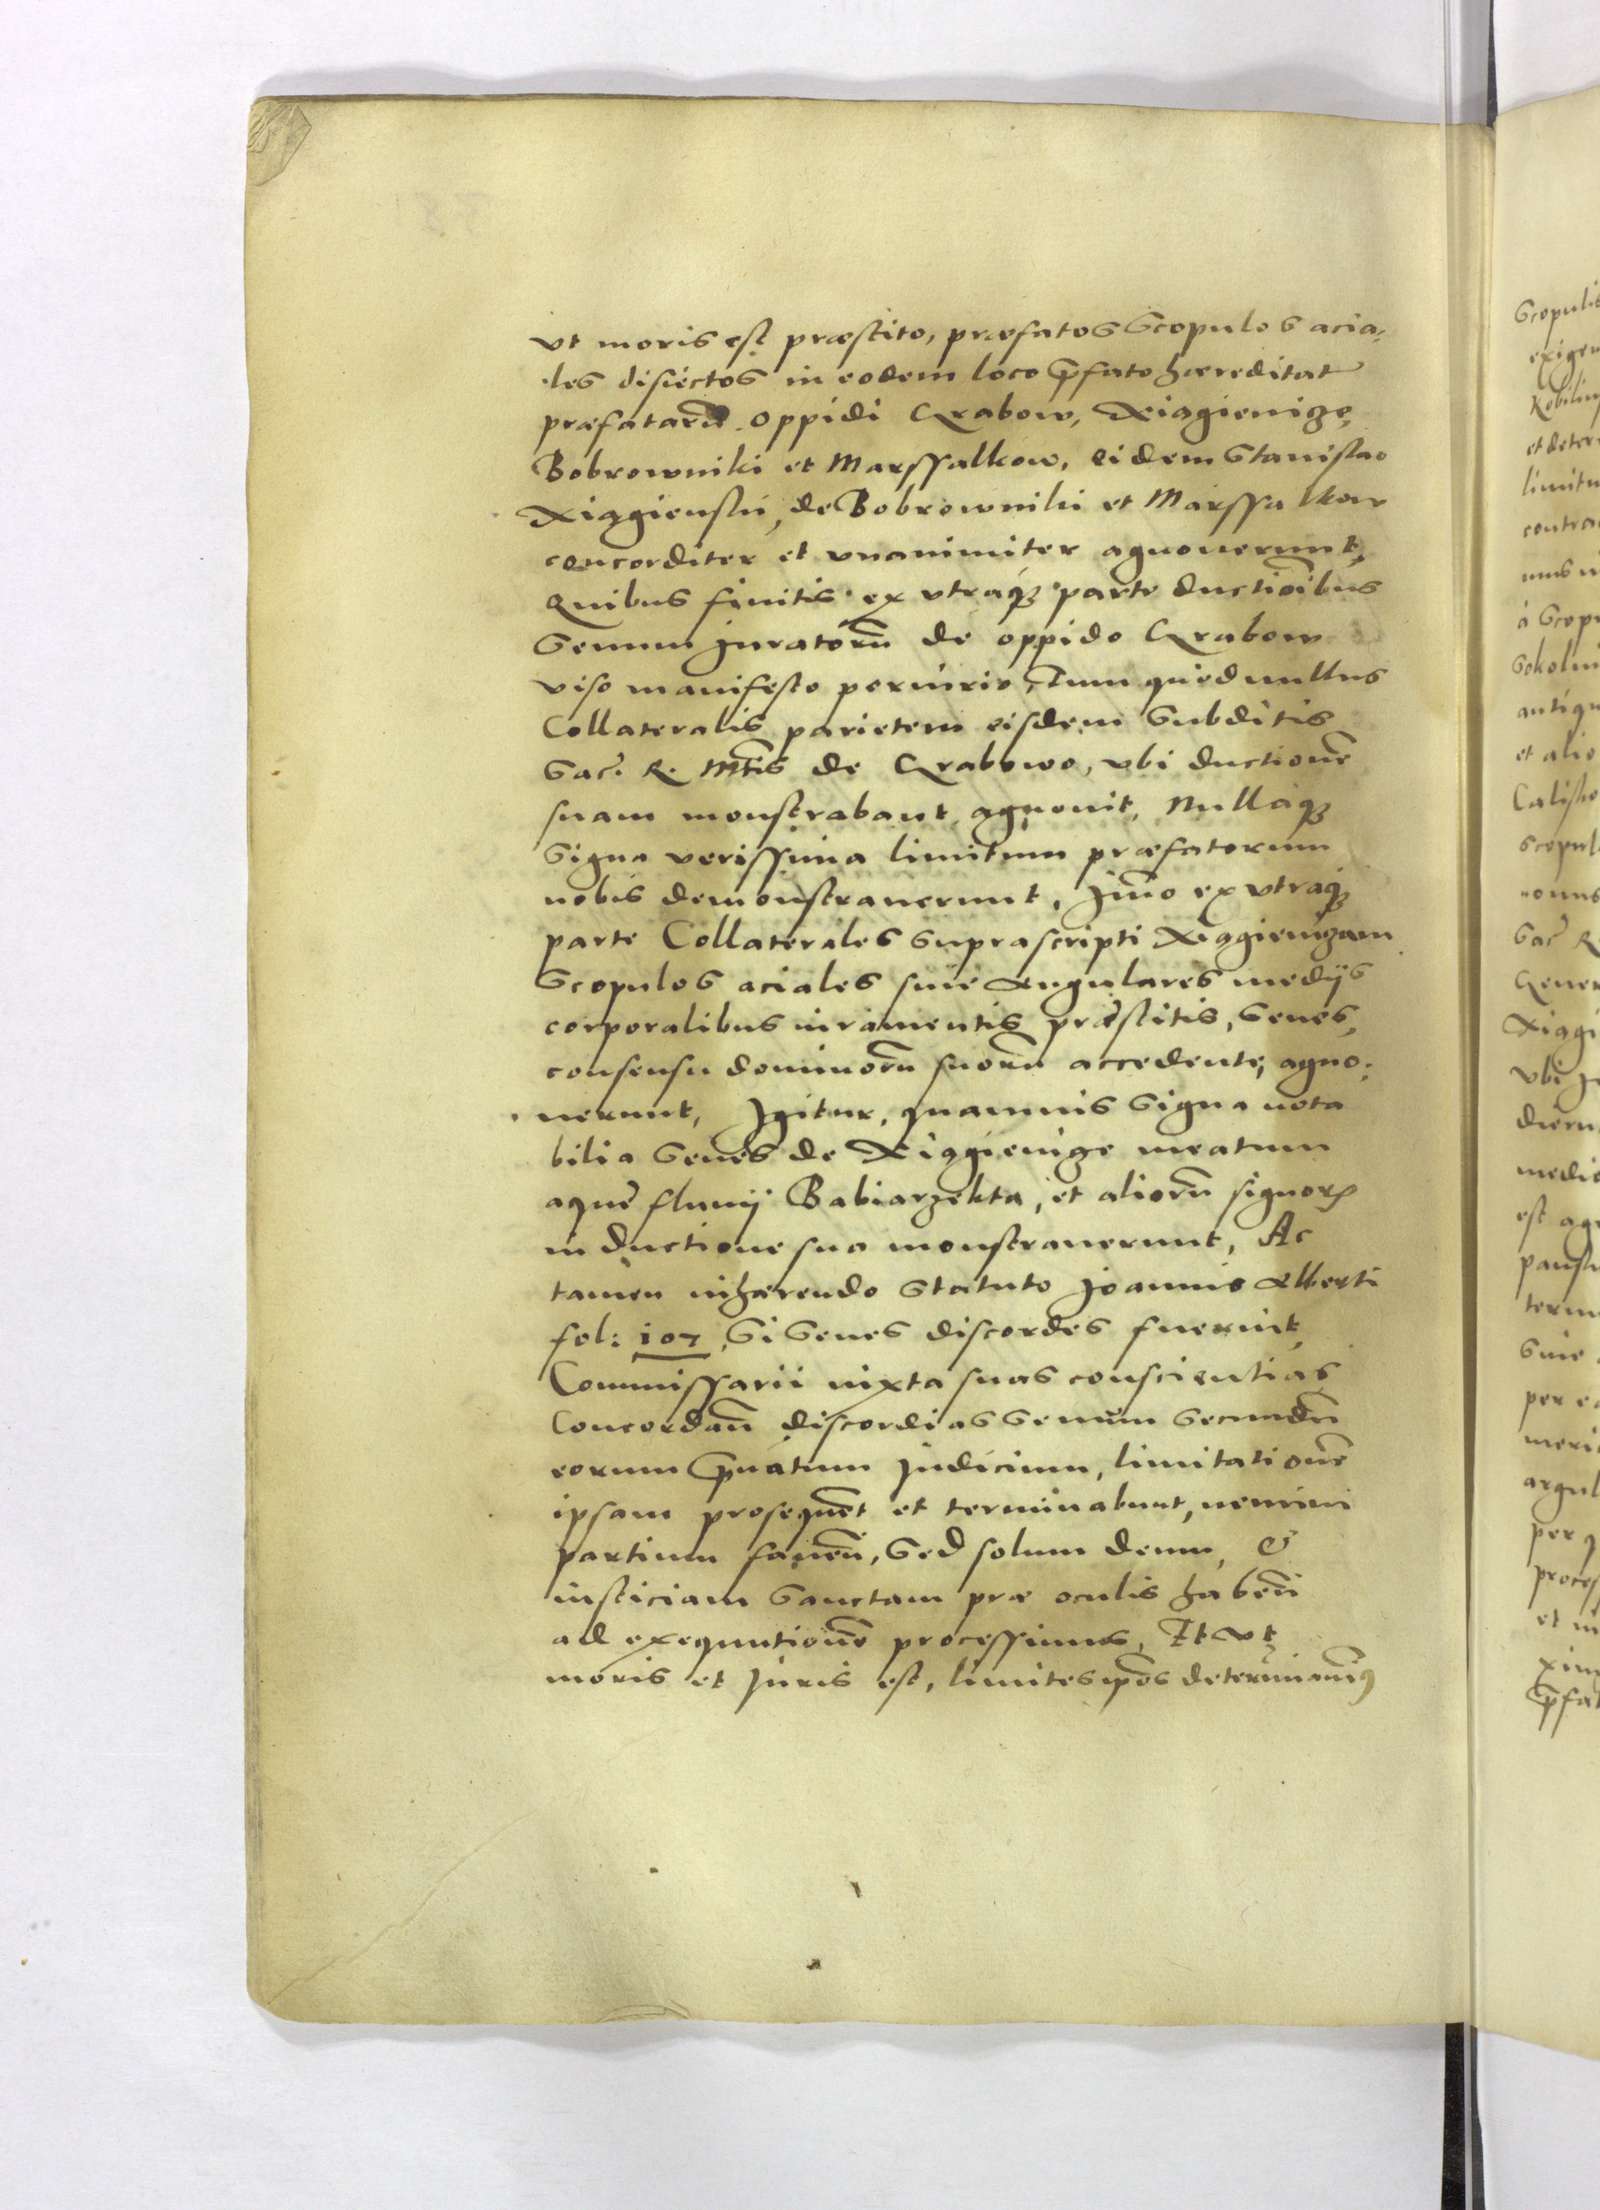 vt moris est præstito, præfatos Scopulos acia-
les disiectos in eodem loco p̃fato hæreditat
præfatarũ oppidi Grabow, Xiągienicze,
Bobrowniki et Marssalkow, eidem Stanislao
Xiągienski, de Bobrowniki et Marssalkow
concorditer et vnanimiter agnouerunt,
Quibus finitis ex vtraq; parte ductiõibus
Senum Juratorũ de oppido Grabow
viso manifesto periurio, Tum quod nullus
Collateralis parietem eisdem Subditis
Sac. R. Mtis de Grabowo, vbi ductionẽ
suam monstrabant, agnouit, Nullaq;
Signa verissima limitum præfatorum
nobis demonstrauerunt, Jmo ex vtraq;
parte Collaterales suprascripti Xiągieniczam
Scopulos aciales siue Angulares medijs
corporalibus iuramentis præstitis, Senes,
consensu dominorũ suorũ accedente, agno-
uerunt, Igitur, quamuis Signa nota
bilia Senes de Xiągienicze meatum
aquæ fluuij Babiarzekta, et aliorũ signorȝ
in ductione sua monstrauerunt, Ac
tamen inhærendo Statuto Joannis Alberti
fol: 107, Si Senes discordes fuerint,
Commissarii iuxta suas conscientias
Concordañ discordias Senum Secundũ
eorum priuatum Judicium, limitationẽ
ipsam prosequent et terminabunt, nemini
partium faueñ, Sed solum deum, &
iusticiam Sanctam præ oculis habeñ
ad exequutionẽ processimus, Et vt
moris et Juris est, limites ip̃os determinauim9

Scopulis
et deter
limitu
contra
à Scopu
Sokolni
antiqu
et alio
Calisko
scopul
Sac R
Gener
Xiągi
vbi
dieru
medio
est ag
term
Siue
per
meri
argul
per q
proces
et in
p̃fat